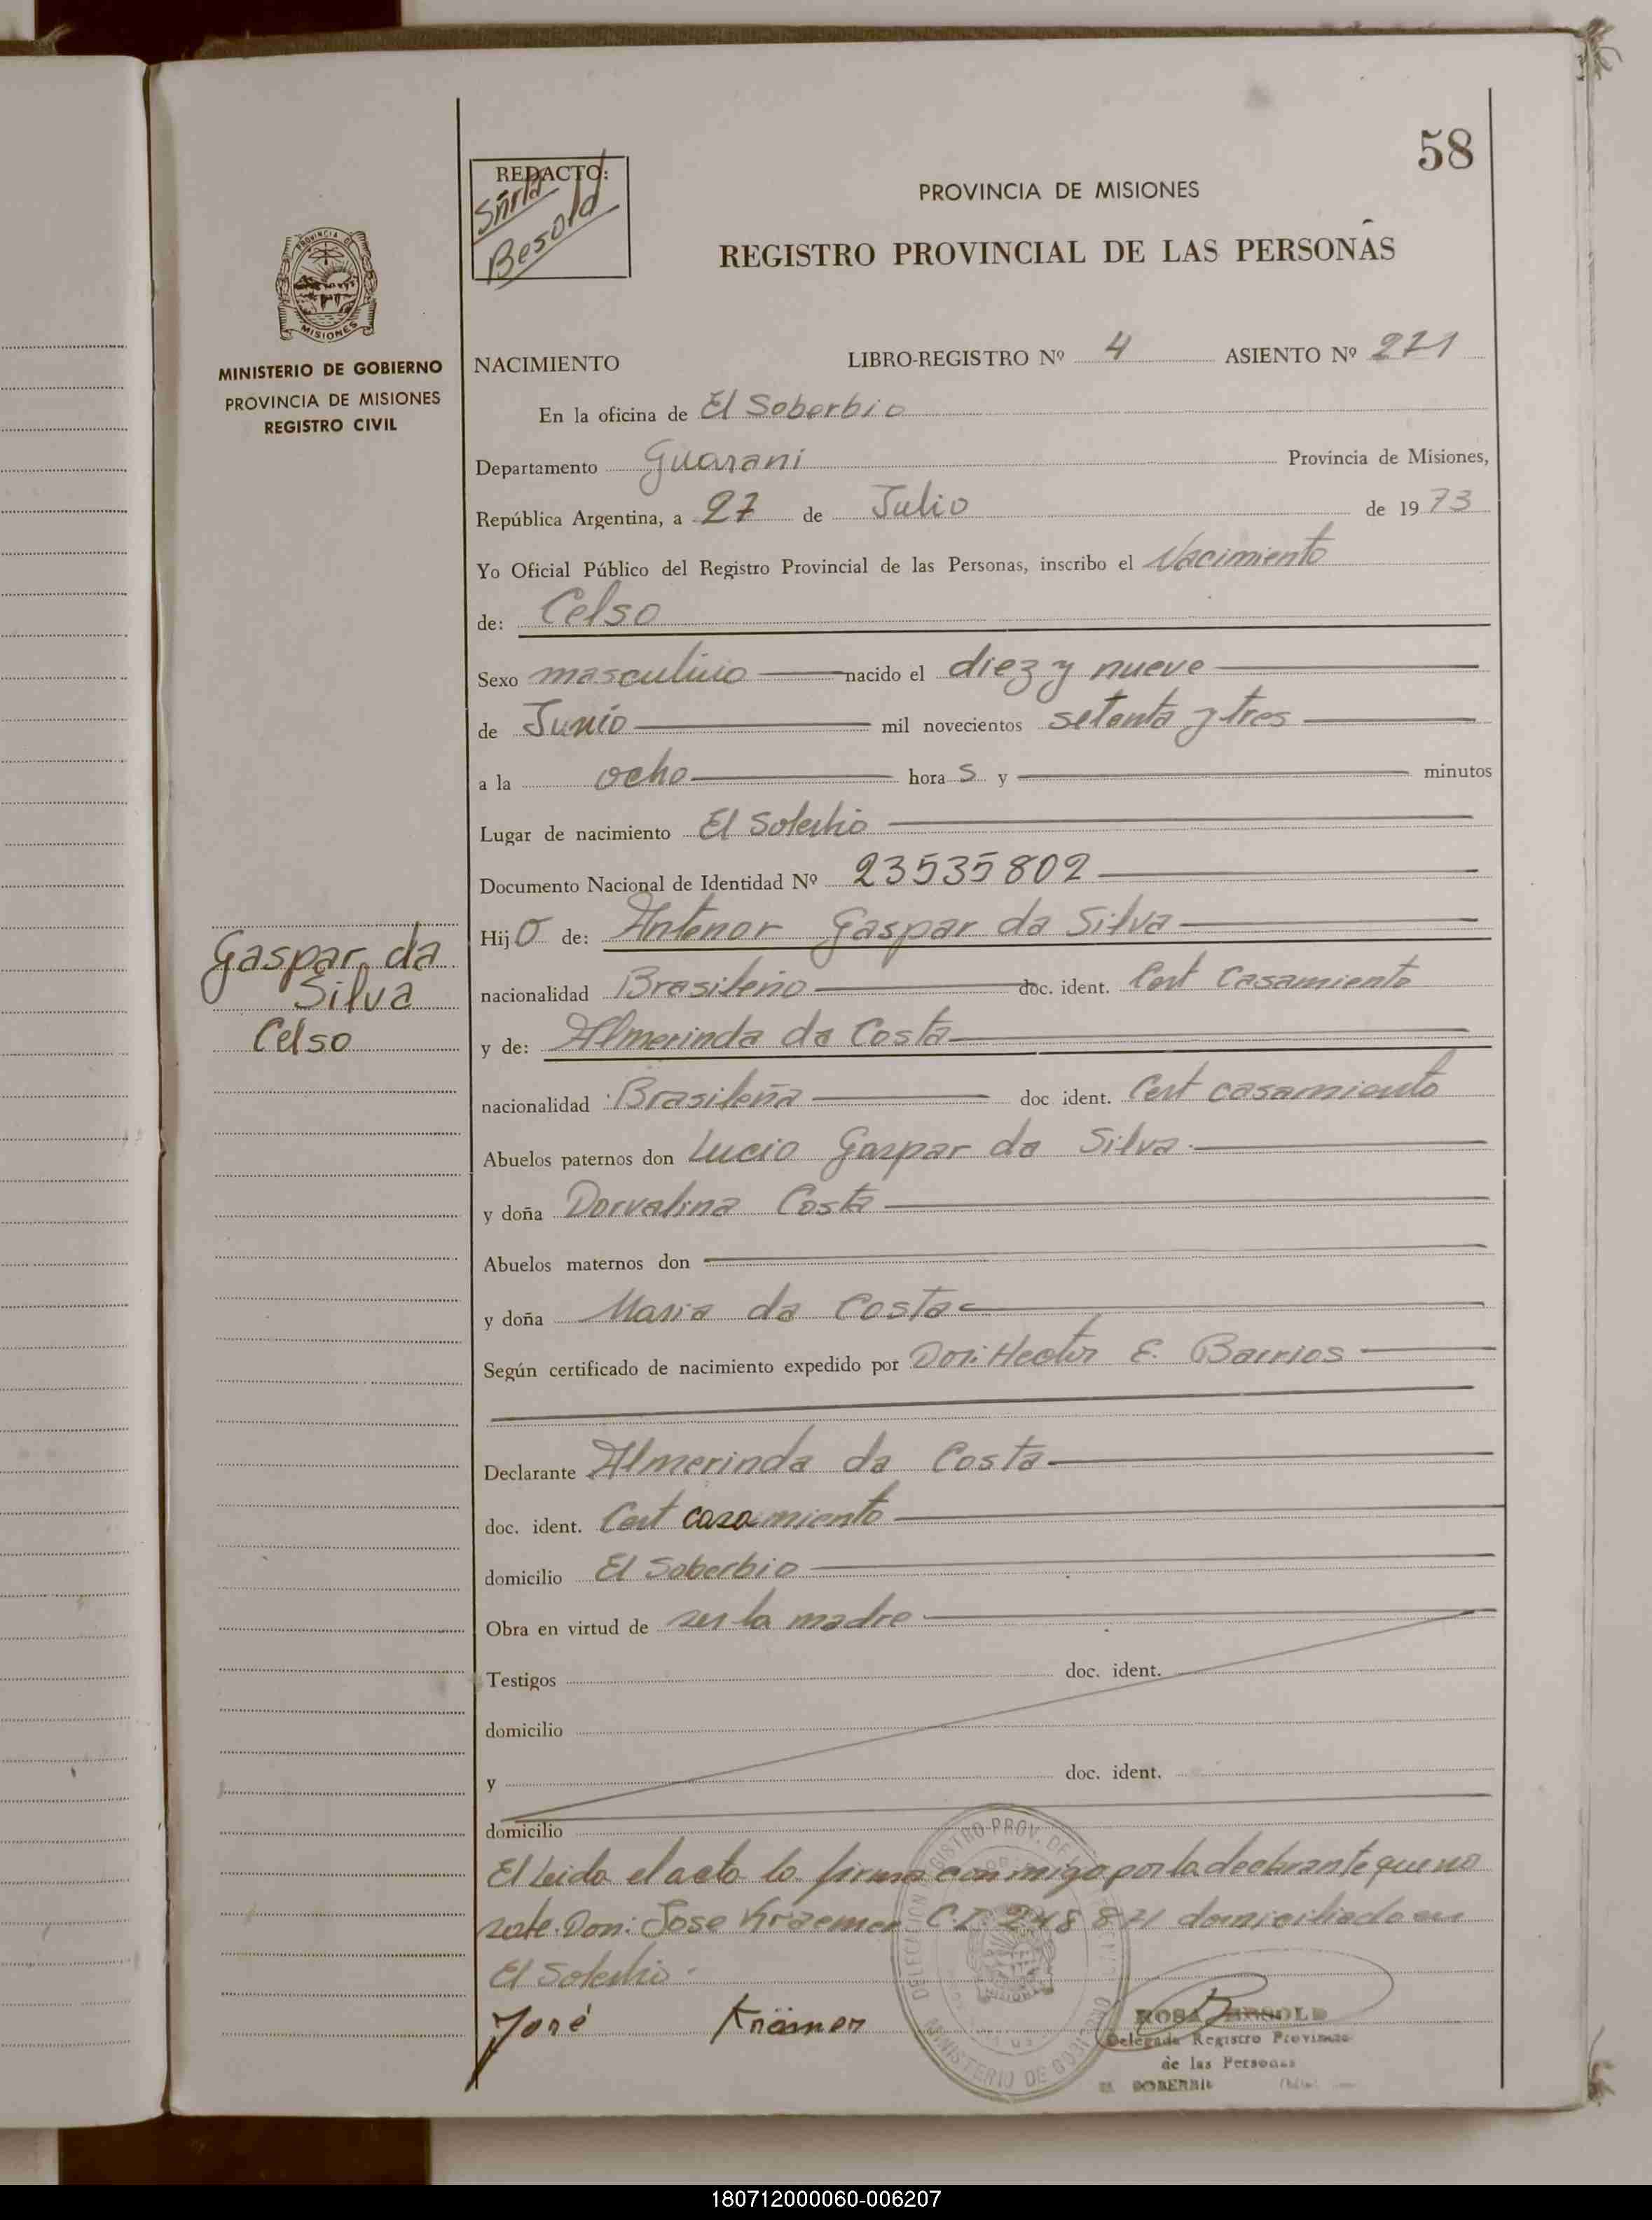 58
REDACTO:
Sñrta
Besold
PROVINCIA DE MISIONES
REGISTRO PROVINCIAL DE LAS PERSONAS
MINISTERIO DE GOBIERNO
PROVINCIA DE MISIONES
REGISTRO CIVIL
NACIMIENTO LIBRO-REGISTRO Nº 4 ASIENTO Nº 271
En la oficina de El Soberbio
Departamento Guarani Provincia de Misiones,
República Argentina, a 27 de Julio de 1973
Yo Oficial Público del Registro Provincial de las Personas, inscribo el Nacimiento
de: Celso
Sexo masculino nacido el diez y nueve
de Junio mil novecientos setenta y tres
a la ocho hora s y minutos
Lugar de nacimiento El Soberbio
Documento Nacional de Identidad Nº 23535802
Hijo de: Antenor Gaspar da Silva
Gaspar da
Silva
Celso
nacionalidad Brasileño doc. ident. Cert Casamiento
y de: Almerinda da Costa
nacionalidad Brasileña doc ident. Cert casamiento
Abuelos paternos don Lucio Gaspar da Silva
y doña Dorvalina Costa
Abuelos maternos don
y doña Maria da Costa
Según certificado de nacimiento expedido por Don: Hector E. Barrios
Declarante Almerinda da Costa
doc. ident. Cert casamiento
domicilio El Soberbio
Obra en virtud de ser la madre
Testigos doc. ident.
domicilio
y doc. ident.
domicilio
El leida el acta la firma conmigo por la declarante que no
sabe Don: Jose Kraemer C I 248 871 domiciliado en
El Soberbio.
José Krämer
ROSA BESOLD
Delegada Registro Provincial
de las Personas
EL SOBERBIO
180712000060-006207